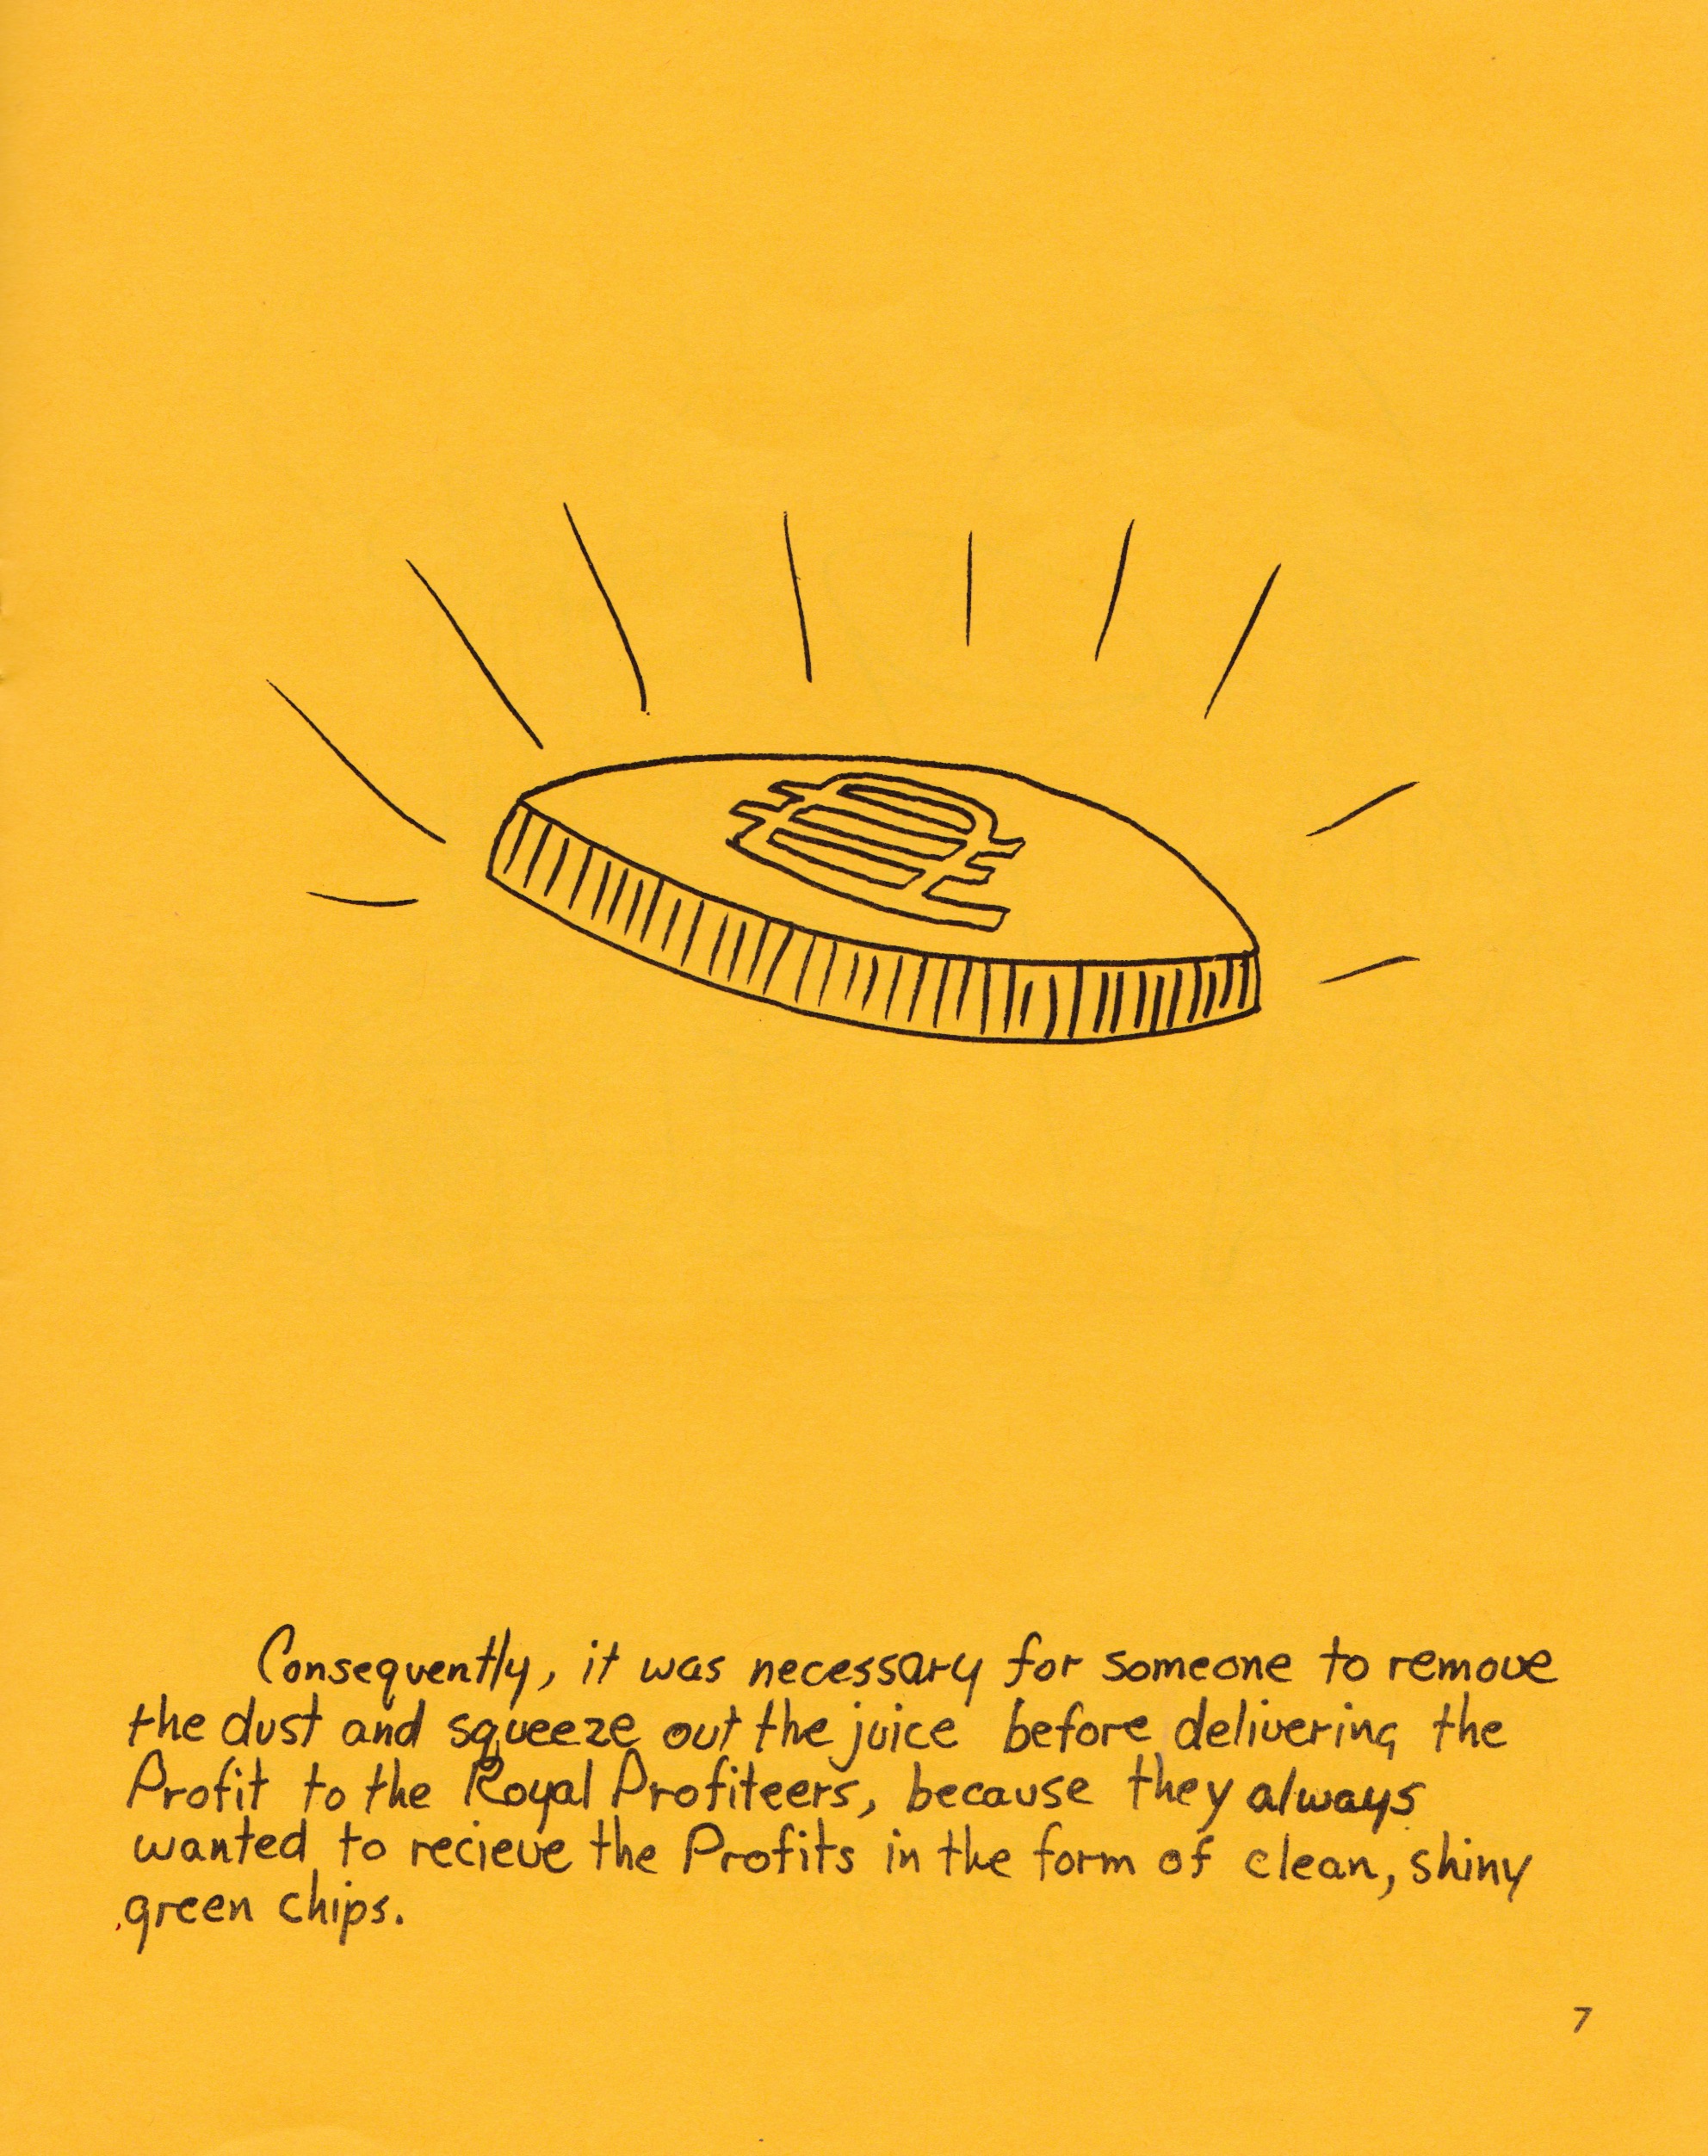 Consequently, it was necessary for someone to remove
the dust and squeeze out the juice before delivering the
Profit to the Royal Profiteers, because they always
wanted to recieve the Profits in the form of clean, shiny
green chips.
7